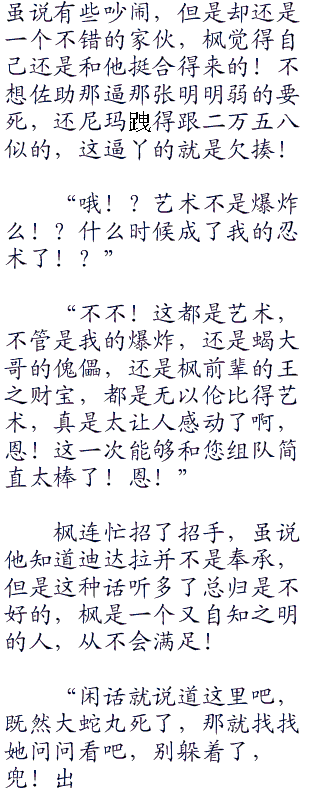 虽说有些吵闹，但是却还是
一个不错的家伙，枫觉得自
己还是和他挺合得来的！不
想佐助那逼那张明明弱的要
死，还尼玛跩得跟二万五八
似的，这逼丫的就是欠揍！
“哦！？艺术不是爆炸
么！？什么时候成了我的忍
术了！？”
“不不！这都是艺术，
不管是我的爆炸，还是蝎大
哥的傀儡，还是枫前辈的王
之财宝，都是无以伦比得艺
术，真是太让人感动了啊，
恩！这一次能够和您组队简
直太棒了！恩！”
枫连忙招了招手，虽说
他知道迪达拉并不是奉承，
但是这种话听多了总归是不
好的，枫是一个又自知之明
的人，从不会满足！
“闲话就说道这里吧，
既然大蛇丸死了，那就找找
她问问看吧，别躲着了，
兜！出